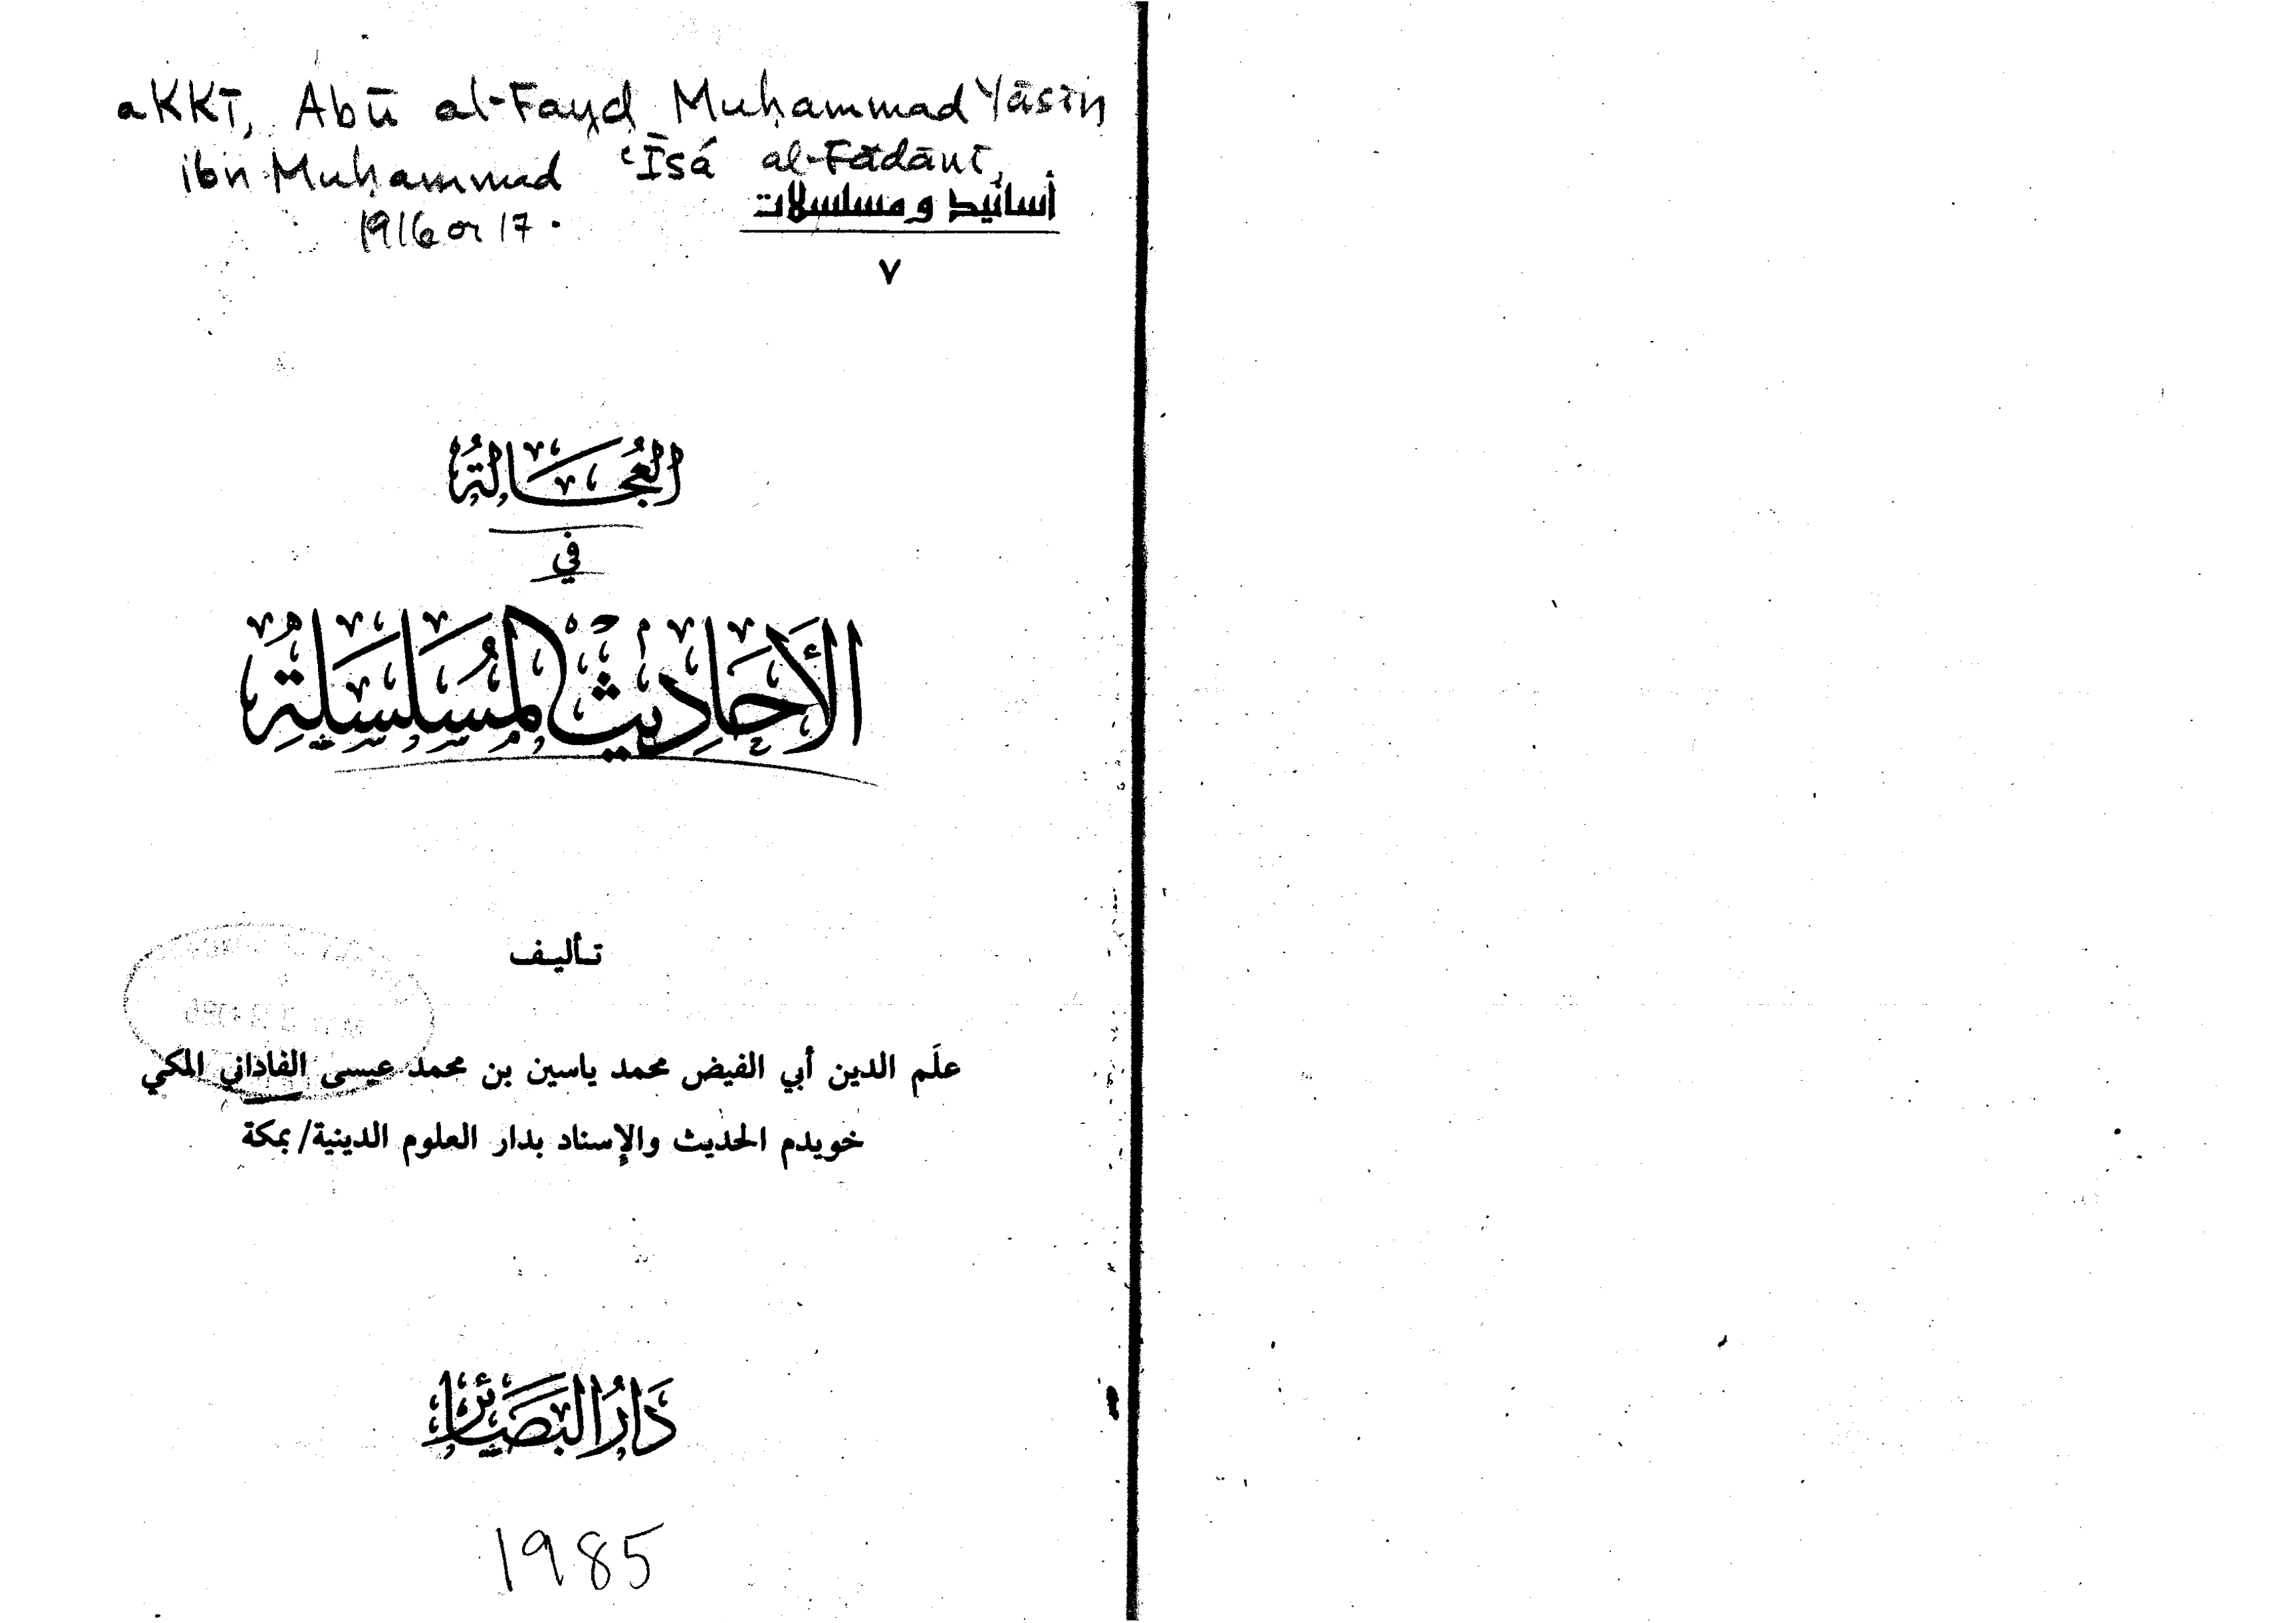 aKKī, Abū al-Fayḍ Muḥammad Yāsīn
ibn Muḥammad ʿĪsá al-Fādānī,
1916 or 17.
أسانيد ومسلسلات
٧
العُجَالَةُ
في
الأَحَادِيْثِ المُسَلْسَلَةِ
تأليف
علَم الدين أبي الفيض محمد ياسين بن محمد عيسى الفاداني المكي
خويدم الحديث والإسناد بدار العلوم الدينية/بمكة
دَارُ البَصَائِر
1985